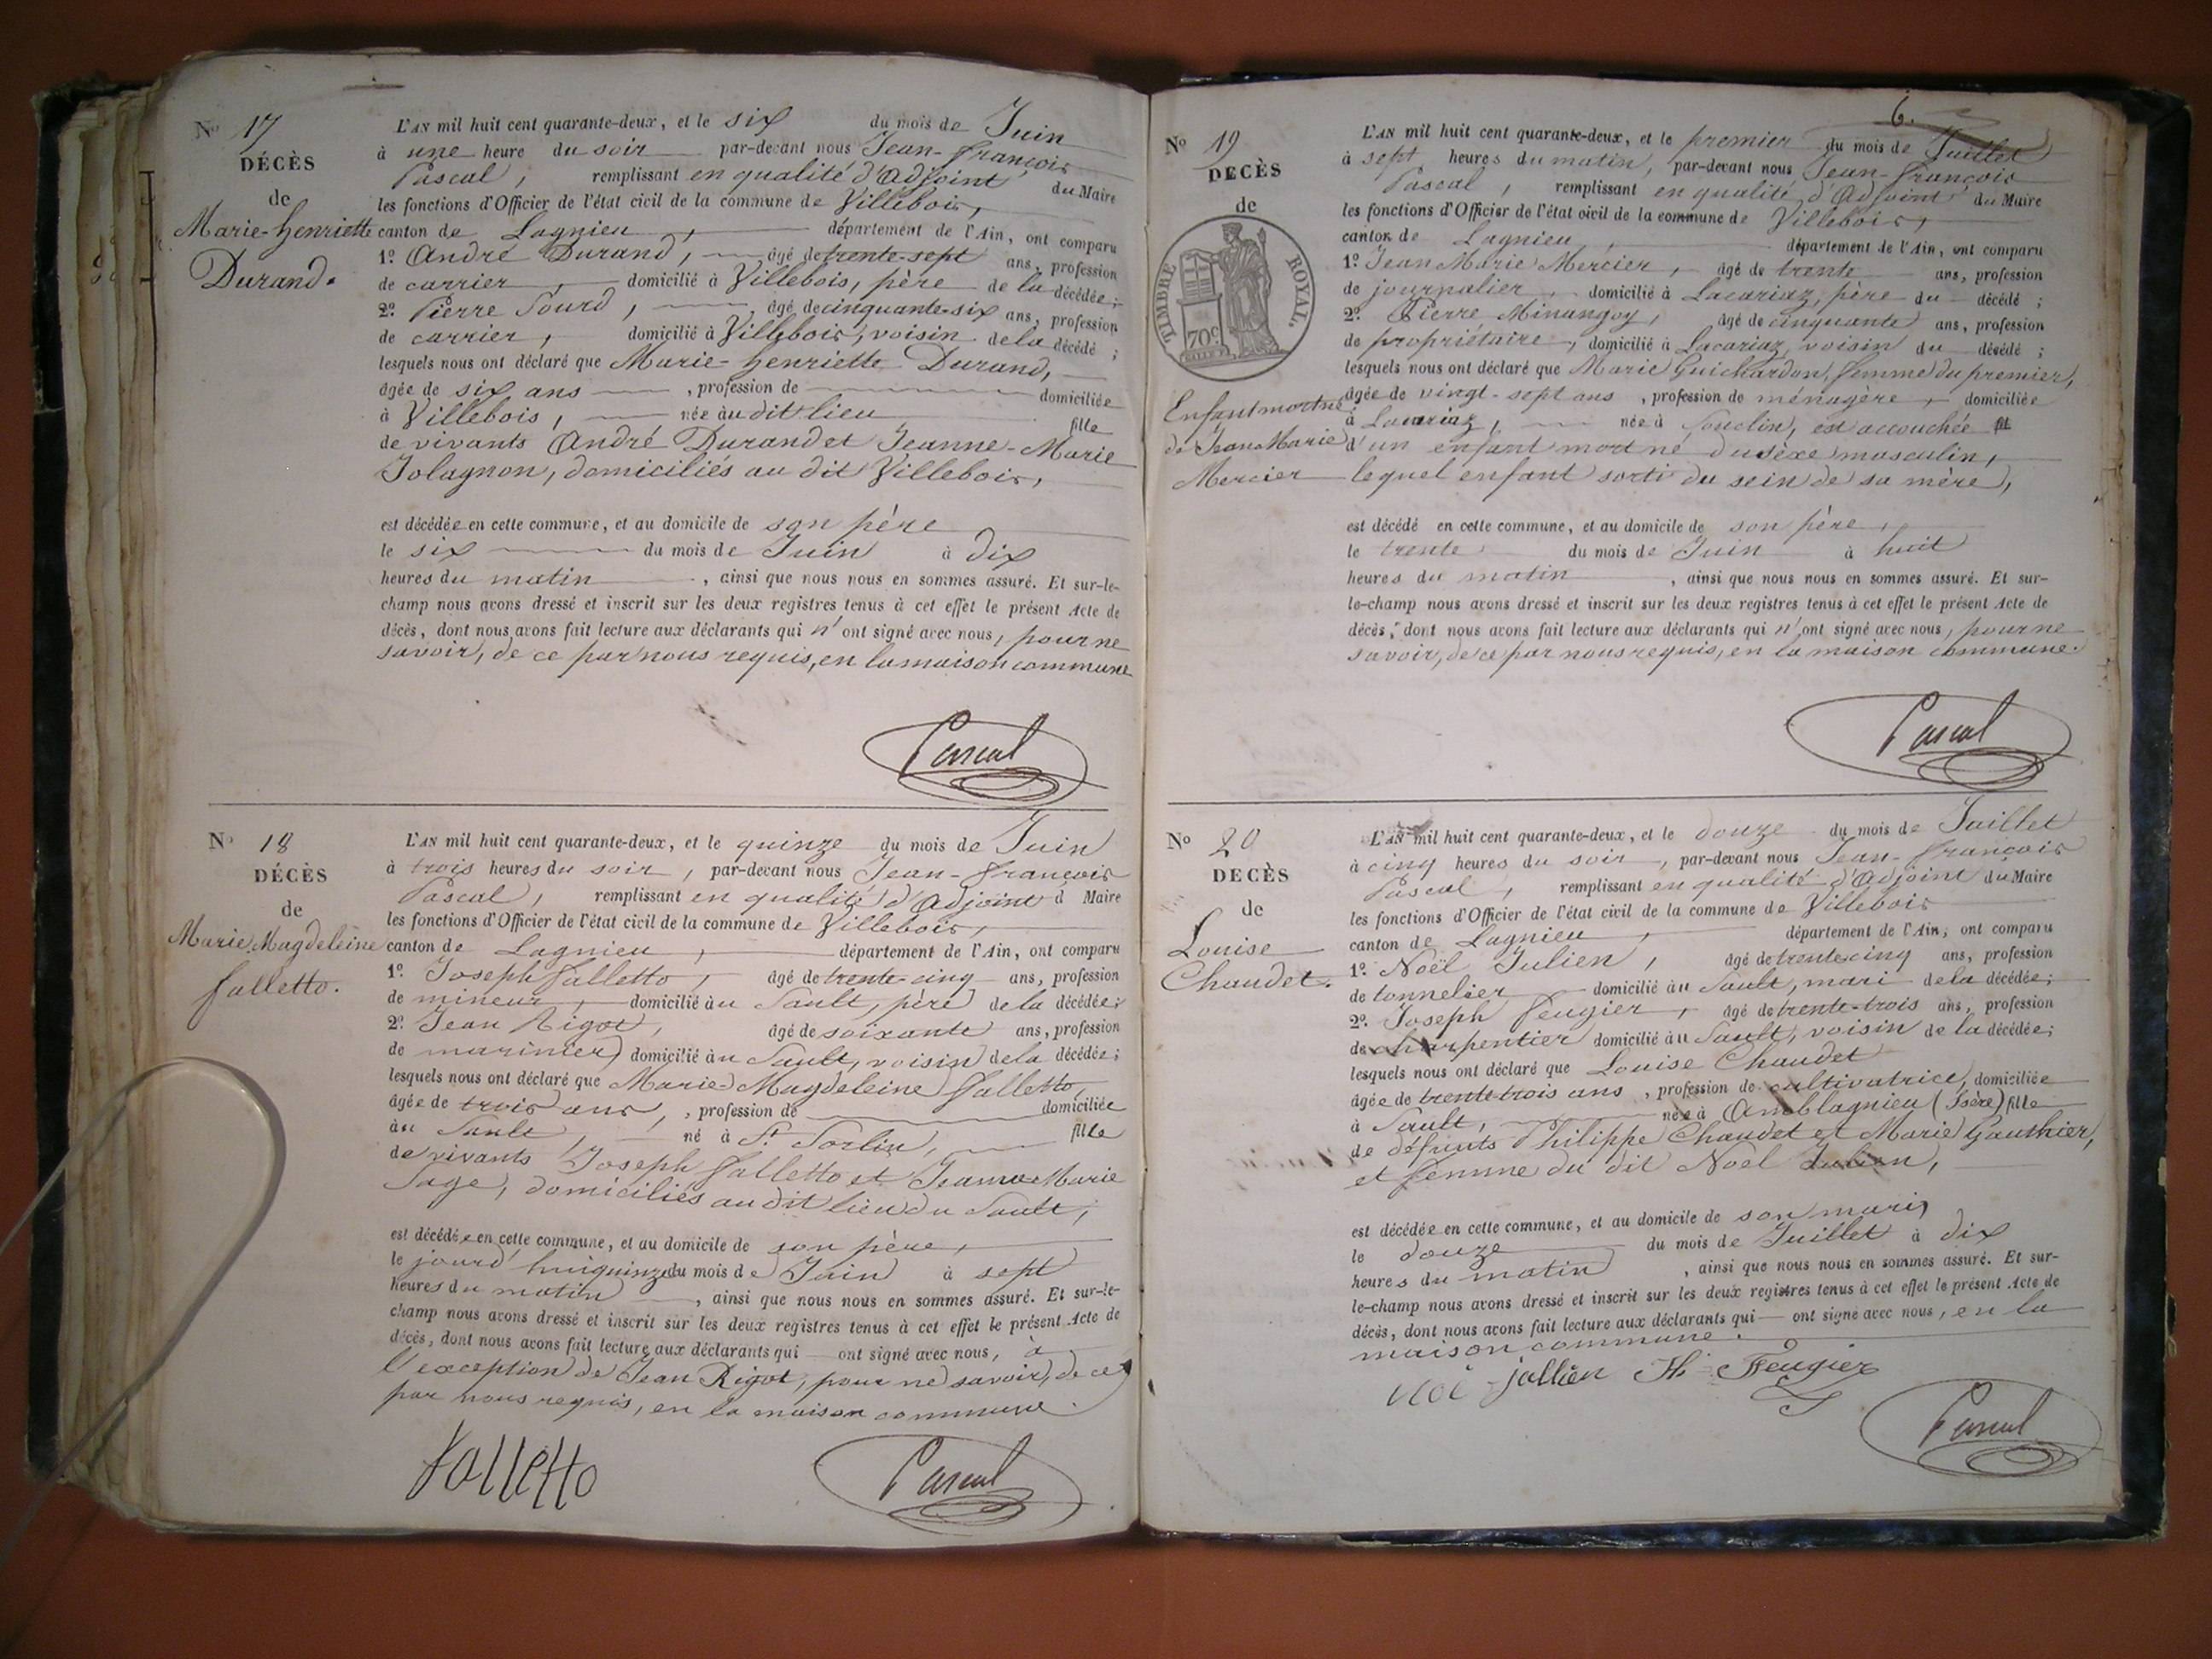 No 17
DÉCÈS
de
Marie-henriette
Durand.
L'AN mil huit cent quarante-deux, et le six du mois de Juin
à une heure du soir par-devant nous Jean-françois
Pascal, remplissant en qualité d'Adjoint du Maire
les fonctions d'Officier de l'état civil de la commune de Villebois,
canton de Lagnieu, département de l'Ain, ont comparu
1º. André Durand, âgé de trente-sept ans, profession
de carrier, domicilié à Villebois, père de la décédée;
2º. Pierre Sourd, âgé de cinquante-six ans, profession
de carrier, domicilié à Villebois, voisin de la décédé;
lesquels nous ont déclaré que Marie-henriette Durand,
âgée de six ans, profession de domiciliée
à Villebois, née àu dit lieu fille
de vivants André Durand et Jeanne-Marie
Jolagnon, domiciliés au dit Villebois,
est décédée en cette commune, et au domicile de son père
le six du mois de Juin à dix
heures du matin, ainsi que nous nous en sommes assuré. Et sur-le-
champ nous avons dressé et inscrit sur les deux registres tenus à cet effet le présent Acte de
décès, dont nous avons fait lecture aux déclarants qui n'ont signé avec nous, pour ne
savoir, de ce par nous requis, en la maison commune
Pascal
No 18
DÉCÈS
de
Marie Magdeleine
falletto.
L'AN mil huit cent quarante-deux, et le quinze du mois de Juin
à trois heures du soir, par-devant nous Jean-françois
Pascal, remplissant en qualité d'Adjoint d Maire
les fonctions d'Officier de l'état civil de la commune de Villebois,
canton de Lagnieu, département de l'Ain, ont comparu
1º. Joseph falletto, âgé de trente-cinq ans, profession
de mineur, domicilié àu Sault, père de la décédée;
2º. Jean Rigot, âgé de soixante ans, profession
de marinier domicilié àu Sault, voisin de la décédée;
lesquels nous ont déclaré que Marie-Magdeleine falletto,
âgée de trois ans, profession de domiciliée
àu Sault, né à St. Sorlin, fille
de vivants Joseph falletto et Jeanne Marie
Sage, domiciliés au dit lieu du Sault,
est décédée en cette commune, et au domicile de son père,
le jourd'hui quinze du mois de Juin à sept
heures du matin, ainsi que nous nous en sommes assuré. Et sur-le-
champ nous avons dressé et inscrit sur les deux registres tenus à cet effet le présent Acte de
décès, dont nous avons fait lecture aux déclarants qui ont signé avec nous, à
l'exception de Jean Rigot, pour ne savoir, de ce
par nous requis, en la maison commune.
falletto
Pascal
6.
No 19
DECÈS
de
TIMBRE ROYAL.
70c
Enfant mort né
de Jean Marie
Mercier
L'AN mil huit cent quarante-deux, et le premier du mois de Juillet
à sept heures du matin, par-devant nous Jean-françois
Pascal, remplissant en qualité d'Adjoint du Maire
les fonctions d'Officier de l'état civil de la commune de Villebois,
canton de Lagnieu, département de l'Ain, ont comparu
1º. Jean Marie Mercier, âgé de trente ans, profession
de journalier, domicilié à Lacariaz, père du décédé;
2º. Pierre Minangoy, âgé de cinquante ans, profession
de propriétaire, domicilié à Lacariaz, voisin du décédé;
lesquels nous ont déclaré que Marie Guichardon, femme du premier,
âgée de vingt-sept ans, profession de ménagère, domiciliée
à Lacariaz, née à Souclin, est accouchée
d'un enfant mort né du sèxe masculin,
lequel enfant sorti du sein de sa mère,
est décédé en cette commune, et au domicile de son père,
le trente du mois de Juin à huit
heures du matin, ainsi que nous nous en sommes assuré. Et sur-
le-champ nous avons dressé et inscrit sur les deux registres tenus à cet effet le présent Acte de
décès, dont nous avons fait lecture aux déclarants qui n'ont signé avec nous, pour ne
savoir, de ce par nous requis, en la maison commune.
Pascal
No 20
DECÈS
de
Louise
Chaudet.
L'AN mil huit cent quarante-deux, et le douze du mois de Juillet
à cinq heures du soir, par-devant nous Jean-françois
Pascal, remplissant en qualité d'Adjoint du Maire
les fonctions d'Officier de l'état civil de la commune de Villebois
canton de Lagnieu, département de l'Ain, ont comparu
1º. Noël Julien, âgé de trente cinq ans, profession
de tonnelier domicilié àu Sault, mari de la décédée;
2º. Joseph feugier, âgé de trente-trois ans, profession
de charpentier domicilié àu Sault, voisin de la décédée;
lesquels nous ont déclaré que Louise Chaudet
âgée de trente-trois ans, profession de cultivatrice, domiciliée
à Sault, née à Amblagnieu (Isère) fille
de défunts Philippe Chaudet et Marie Gauthier,
et femme du dit Noël Julien,
est décédée en cette commune, et au domicile de son mari,
le douze du mois de Juillet à dix
heures du matin, ainsi que nous nous en sommes assuré. Et sur-
le-champ nous avons dressé et inscrit sur les deux registres tenus à cet effet le présent Acte de
décès, dont nous avons fait lecture aux déclarants qui ont signé avec nous, en la
maison commune.
noé jullien Jh Feugier
Pascal